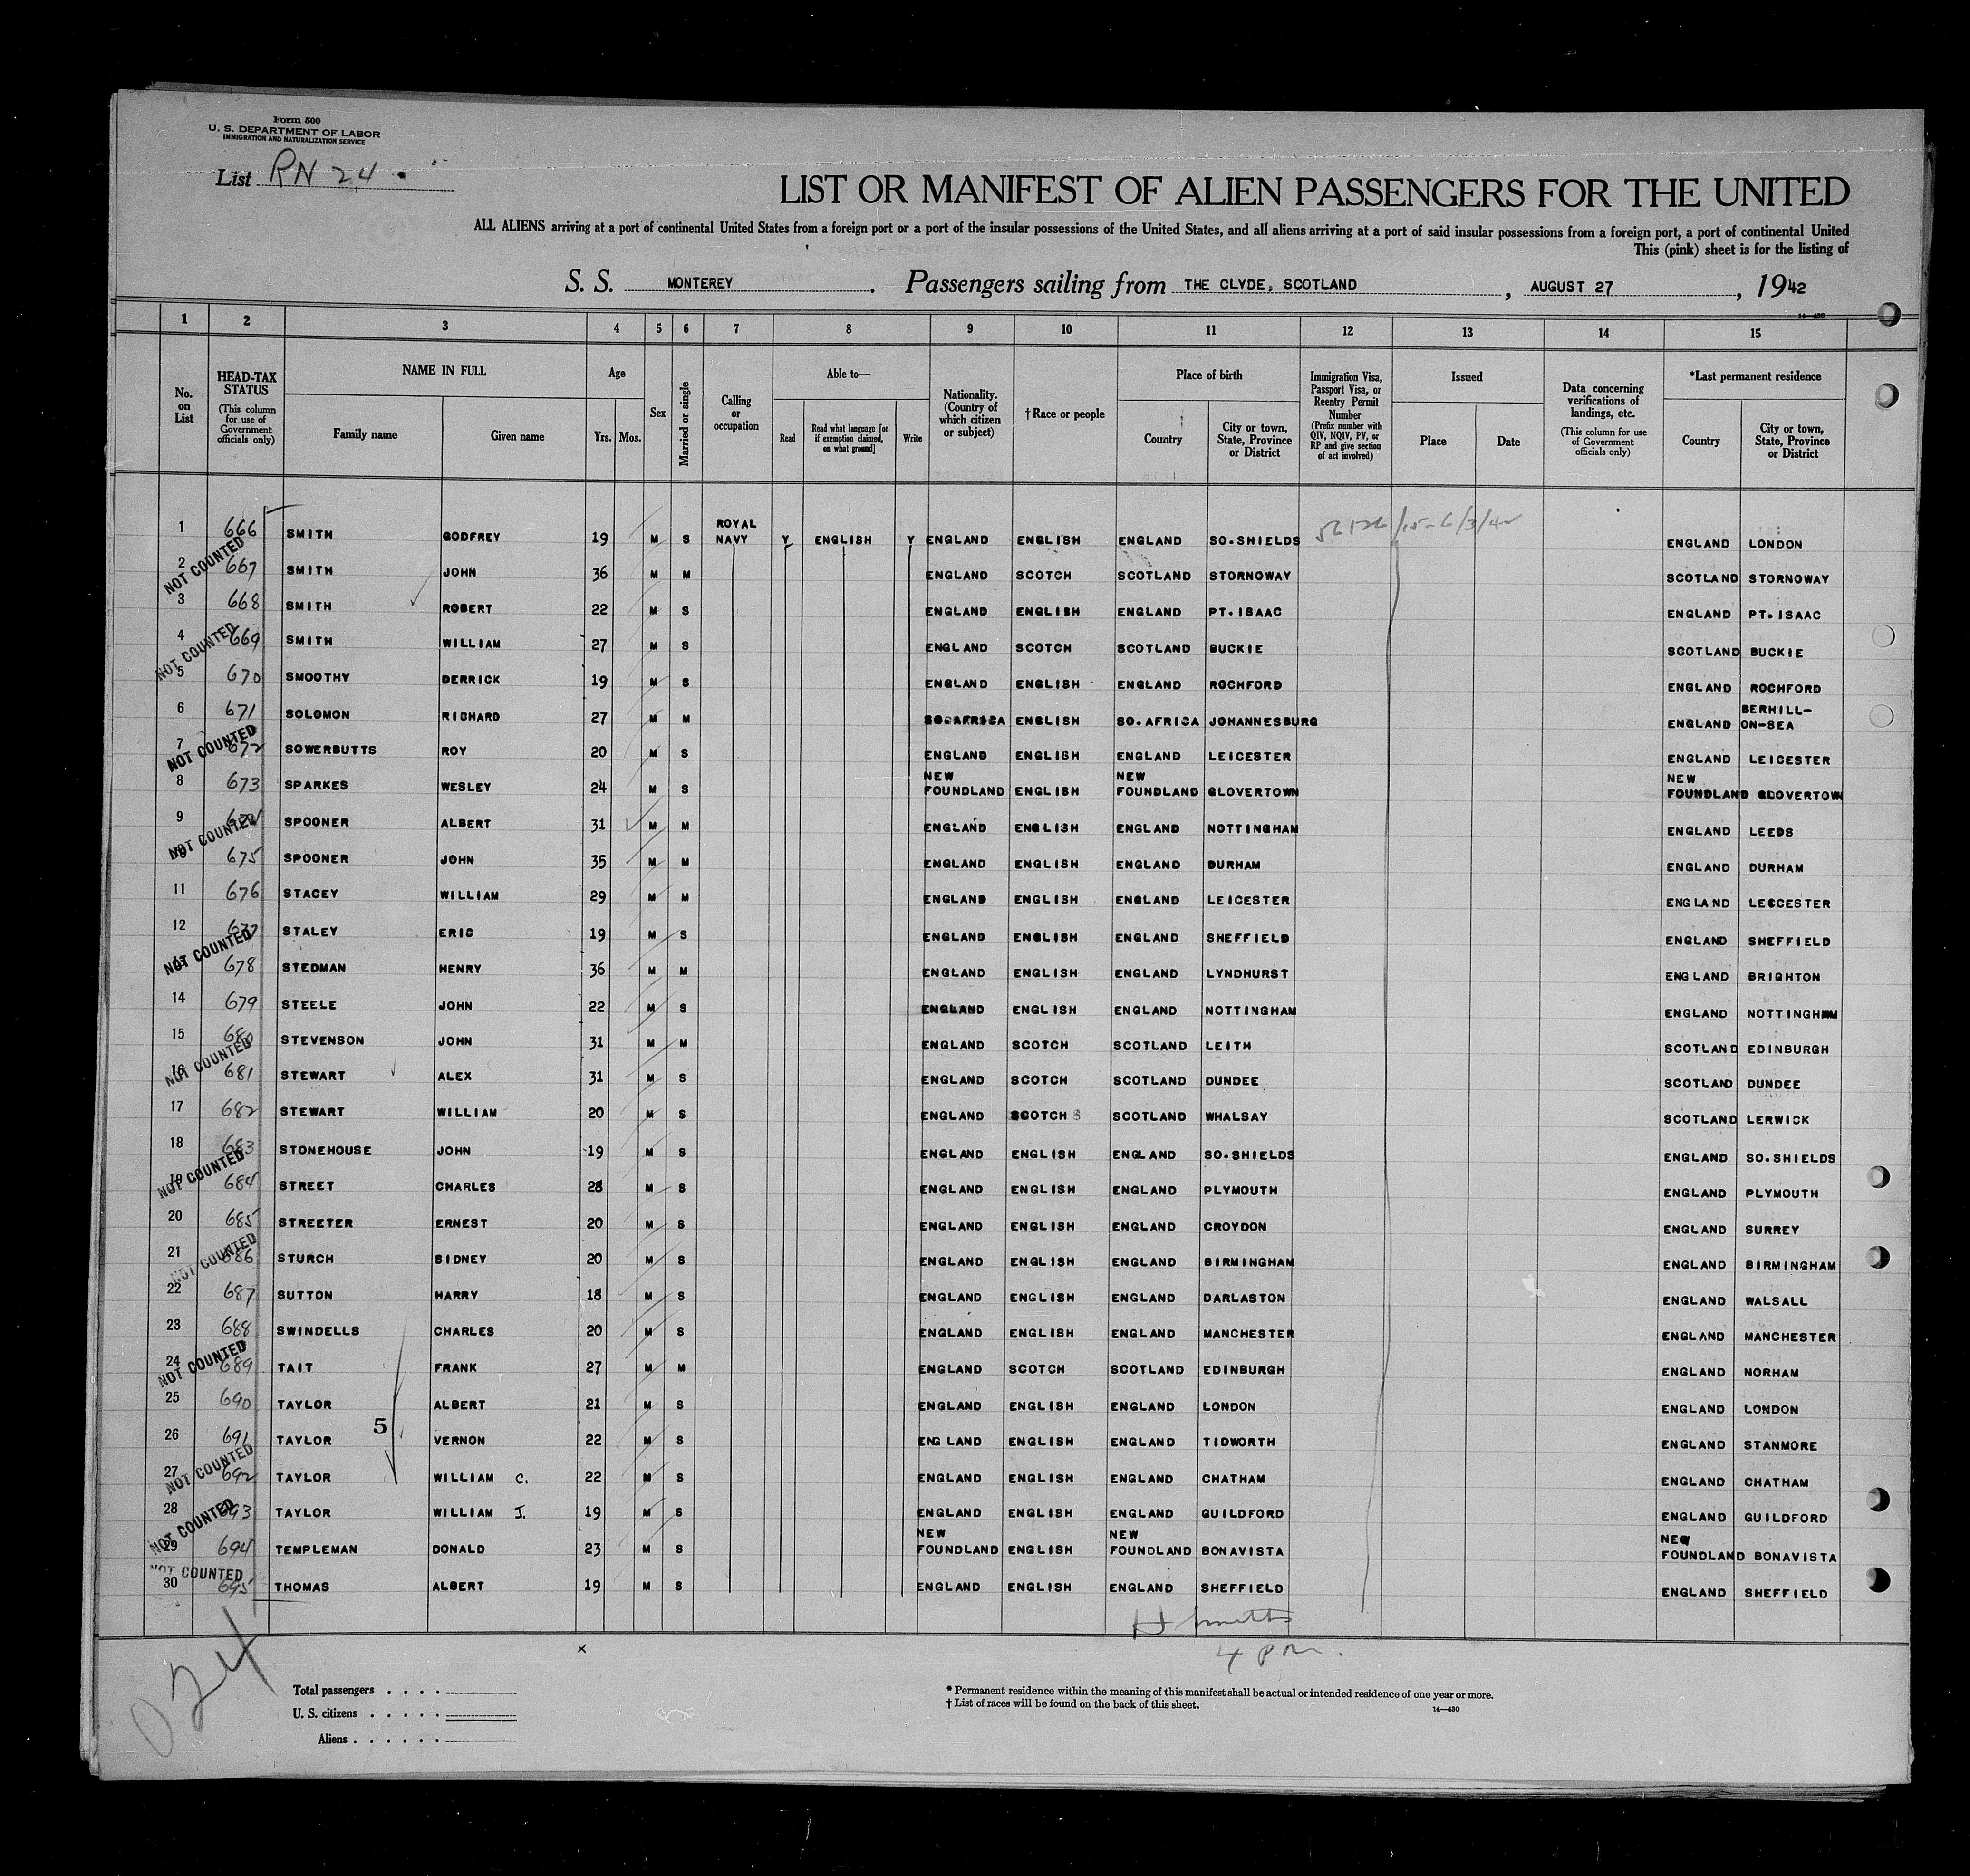 Form 500
U. S. DEPARTMENT OF LABOR
IMMIGRATION AND NATURALIZATION SERVICE
List RN 24
LIST OR MANIFEST OF ALIEN PASSENGERS FOR THE UNITED
ALL ALIENS arriving at a port of continental United States from a foreign port or a port of the insular possessions of the United States, and all aliens arriving at a port of said insular possessions from a foreign port, a port of continental United
This (pink) sheet is for the listing of
S. S. MONTEREY. Passengers sailing from THE CLYDE, SCOTLAND, AUGUST 27, 1942
14—430
1 2 3 4 5 6 7 8 9 10 11 12 13 14 15
No. on List
HEAD-TAX STATUS (This column for use of Government officials only)
NAME IN FULL
Family name Given name
Age
Yrs. Mos.
Sex
Married or single
Calling or occupation
Able to—
Read Read what language [or if exemption claimed, on what ground] Write
Nationality. (Country of which citizen or subject)
†Race or people
Place of birth
Country City or town, State, Province or District
Immigration Visa, Passport Visa, or Reentry Permit Number (Prefix number with QIV, NQIV, PV, or RP and give section of act involved)
Issued
Place Date
Data concerning verifications of landings, etc. (This column for use of Government officials only)
*Last permanent residence
Country City or town, State, Province or District
1 666 SMITH GODFREY 19 M S ROYAL NAVY Y ENGLISH Y ENGLAND ENGLISH ENGLAND SO.SHIELDS ENGLAND LONDON
NOT COUNTED
2 667 SMITH JOHN 36 M M ENGLAND SCOTCH SCOTLAND STORNOWAY SCOTLAND STORNOWAY
3 668 SMITH ROBERT 22 M S ENGLAND ENGLISH ENGLAND PT.ISAAC ENGLAND PT.ISAAC
4 669 SMITH WILLIAM 27 M S ENGLAND SCOTCH SCOTLAND BUCKIE SCOTLAND BUCKIE
NOT COUNTED
5 670 SMOOTHY DERRICK 19 M S ENGLAND ENGLISH ENGLAND ROCHFORD ENGLAND ROCHFORD
6 671 SOLOMON RICHARD 27 M M SO.AFRICA ENGLISH SO.AFRICA JOHANNESBURG ENGLAND BERHILL-ON-SEA
NOT COUNTED
7 672 SOWERBUTTS ROY 20 M S ENGLAND ENGLISH ENGLAND LEICESTER ENGLAND LEICESTER
8 673 SPARKES WESLEY 24 M S NEW FOUNDLAND ENGLISH NEW FOUNDLAND GLOVERTOWN NEW FOUNDLAND GLOVERTOWN
9 674 SPOONER ALBERT 31 M M ENGLAND ENGLISH ENGLAND NOTTINGHAM ENGLAND LEEDS
NOT COUNTED
10 675 SPOONER JOHN 35 M M ENGLAND ENGLISH ENGLAND DURHAM ENGLAND DURHAM
11 676 STACEY WILLIAM 29 M M ENGLAND ENGLISH ENGLAND LEICESTER ENGLAND LECCESTER
12 677 STALEY ERIC 19 M S ENGLAND ENGLISH ENGLAND SHEFFIELD ENGLAND SHEFFIELD
NOT COUNTED
678 STEDMAN HENRY 36 M M ENGLAND ENGLISH ENGLAND LYNDHURST ENGLAND BRIGHTON
14 679 STEELE JOHN 22 M S ENGLAND ENGLISH ENGLAND NOTTINGHAM ENGLAND NOTTINGHAM
15 680 STEVENSON JOHN 31 M M ENGLAND SCOTCH SCOTLAND LEITH SCOTLAND EDINBURGH
NOT COUNTED
16 681 STEWART ALEX 31 M S ENGLAND SCOTCH SCOTLAND DUNDEE SCOTLAND DUNDEE
17 682 STEWART WILLIAM 20 M S ENGLAND SCOTCH SCOTLAND WHALSAY SCOTLAND LERWICK
18 683 STONEHOUSE JOHN 19 M S ENGLAND ENGLISH ENGLAND SO.SHIELDS ENGLAND SO.SHIELDS
NOT COUNTED
19 684 STREET CHARLES 28 M S ENGLAND ENGLISH ENGLAND PLYMOUTH ENGLAND PLYMOUTH
20 685 STREETER ERNEST 20 M S ENGLAND ENGLISH ENGLAND CROYDON ENGLAND SURREY
21 686 STURCH SIDNEY 20 M S ENGLAND ENGLISH ENGLAND BIRMINGHAM ENGLAND BIRMINGHAM
NOT COUNTED
22 687 SUTTON HARRY 18 M S ENGLAND ENGLISH ENGLAND DARLASTON ENGLAND WALSALL
23 688 SWINDELLS CHARLES 20 M S ENGLAND ENGLISH ENGLAND MANCHESTER ENGLAND MANCHESTER
24 689 TAIT FRANK 27 M M ENGLAND SCOTCH SCOTLAND EDINBURGH ENGLAND NORHAM
NOT COUNTED
25 690 TAYLOR ALBERT 21 M S ENGLAND ENGLISH ENGLAND LONDON ENGLAND LONDON
5
26 691 TAYLOR VERNON 22 M S ENGLAND ENGLISH ENGLAND TIDWORTH ENGLAND STANMORE
NOT COUNTED
27 692 TAYLOR WILLIAM C. 22 M S ENGLAND ENGLISH ENGLAND CHATHAM ENGLAND CHATHAM
28 693 TAYLOR WILLIAM J. 19 M S ENGLAND ENGLISH ENGLAND GUILDFORD ENGLAND GUILDFORD
NOT COUNTED
29 694 TEMPLEMAN DONALD 23 M S NEW FOUNDLAND ENGLISH NEW FOUNDLAND BONAVISTA NEW FOUNDLAND BONAVISTA
NOT COUNTED
30 695 THOMAS ALBERT 19 M S ENGLAND ENGLISH ENGLAND SHEFFIELD ENGLAND SHEFFIELD
4 PM.
024
x
Total passengers
U. S. citizens
Aliens
* Permanent residence within the meaning of this manifest shall be actual or intended residence of one year or more.
† List of races will be found on the back of this sheet.
14—430